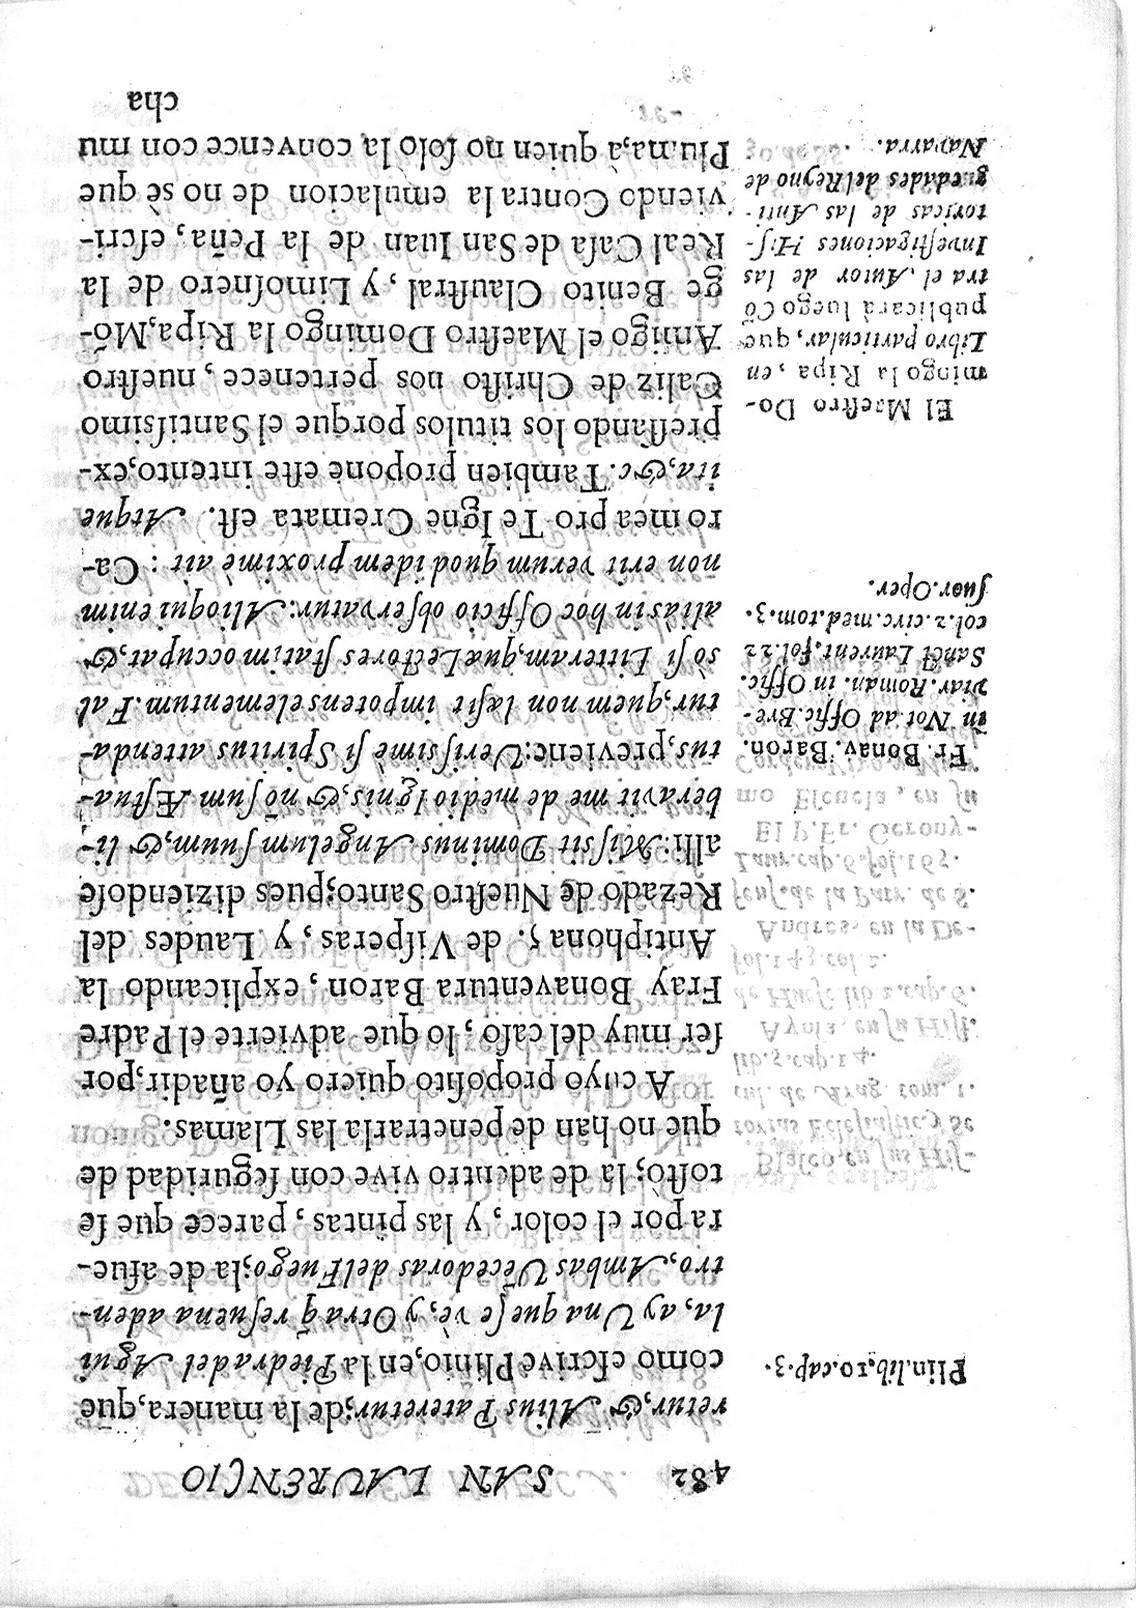 482 SAN LAURENCIO
retur, & Alius Pateretur; de la manera, que
como escrive Plinio, en la Piedra del Agui
la, ay Una que se vè, y Otra q̃ resuena aden-
tro, Ambas Vẽcedoras del Fuego; la de afue-
ra por el color, y las pintas, parece que se
tostò; la de adentro vive con seguridad de
que no han de penetrarla las Llamas.
A cuyo proposito quiero yo añadir, por
ser muy del caso, lo que advierte el Padre
Fray Bonaventura Baron, explicando la
Antiphona 5. de Visperas, y Laudes del
Rezado de Nuestro Santo; pues diziendose
alli: Missit Dominus Angelum suum, & li-
beravit me de medio Ignis, & nõ sum Æstua-
tus, previene: Verissimè si Spiritus attenda-
tur, quem non læsit impotens elementum. Fal
sò si Litteram, quæ Lectores statim occupat, &
alias in hoc Officio observatur: Alioqui enim
non erit verum quod idem proximè ait: Ca-
ro mea pro Te Igne Cremata est. Atque
ita, &c. Tambien propone este intento, ex-
pressando los titulos porque el Santissimo
Caliz de Christo nos pertenece, nuestro
Amigo el Maestro Domingo la Ripa, Mõ-
ge Benito Claustral, y Limosnero de la
Real Casa de San Iuan de la Peña, escri-
viendo Contra la emulacion de no sè que
Pluma, à quien no solo la convence con mu
cha
Plin. lib. 10. cap. 3.
Fr. Bonav. Baron.
in Not. ad Offic. Bre-
viar. Roman. in Offic.
Sanct Laurent. fol. 22
col. 2. circ. med. tom. 3.
suor. Oper.
El Maestro Do-
mingo la Ripa, en
Libro particular, que
publicarà luego Cõ
tra el Autor de las
Investigaciones His-
toricas de las Anti-
guedades del Reyno de
Navarra.